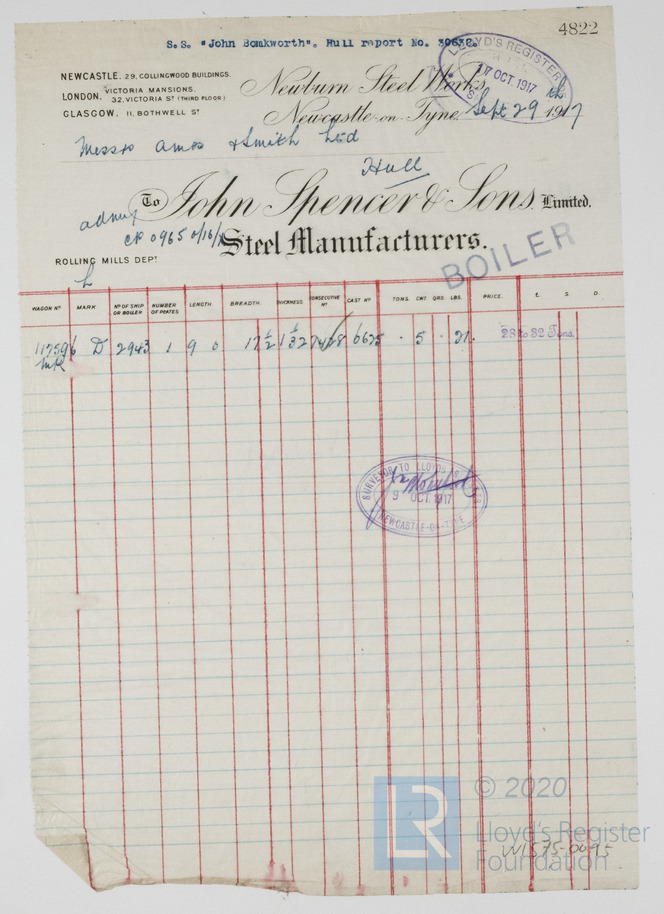 4822
S.S. "John Bomkworth". Hull report No. 30632.
LLOYD'S REGISTER
17 OCT. 1917
NEWCASTLE. 29, COLLINGWOOD BUILDINGS.
LONDON. VICTORIA MANSIONS,
32, VICTORIA ST (THIRD FLOOR)
GLASGOW. 11, BOTHWELL ST
Newburn Steel Works,
Newcastle-on-Tyne. Sept 29th 1917
Messrs Amos & Smith Ltd
Hull
To John Spencer & Sons Limited.
admty
CP 0965 0/16/
Steel Manufacturers.
BOILER
ROLLING MILLS DEPT
L
WAGON No MARK No OF SHIP OR BOILER NUMBER OF PLATES LENGTH BREADTH. THICKNESS CONSECUTIVE No CAST No TONS. CWT. QRS. LBS. PRICE. £. S. D.
117596 D 2943 1 9 0 17 1/2 1 1/32 6625 . 5 . 21. 28 to 32 Tons.
SURVEYOR TO LLOYD'S REGISTER
9 OCT. 1917
NEWCASTLE-ON-TYNE
LR
© 2020
Lloyd's Register
Foundation
W1575-0095